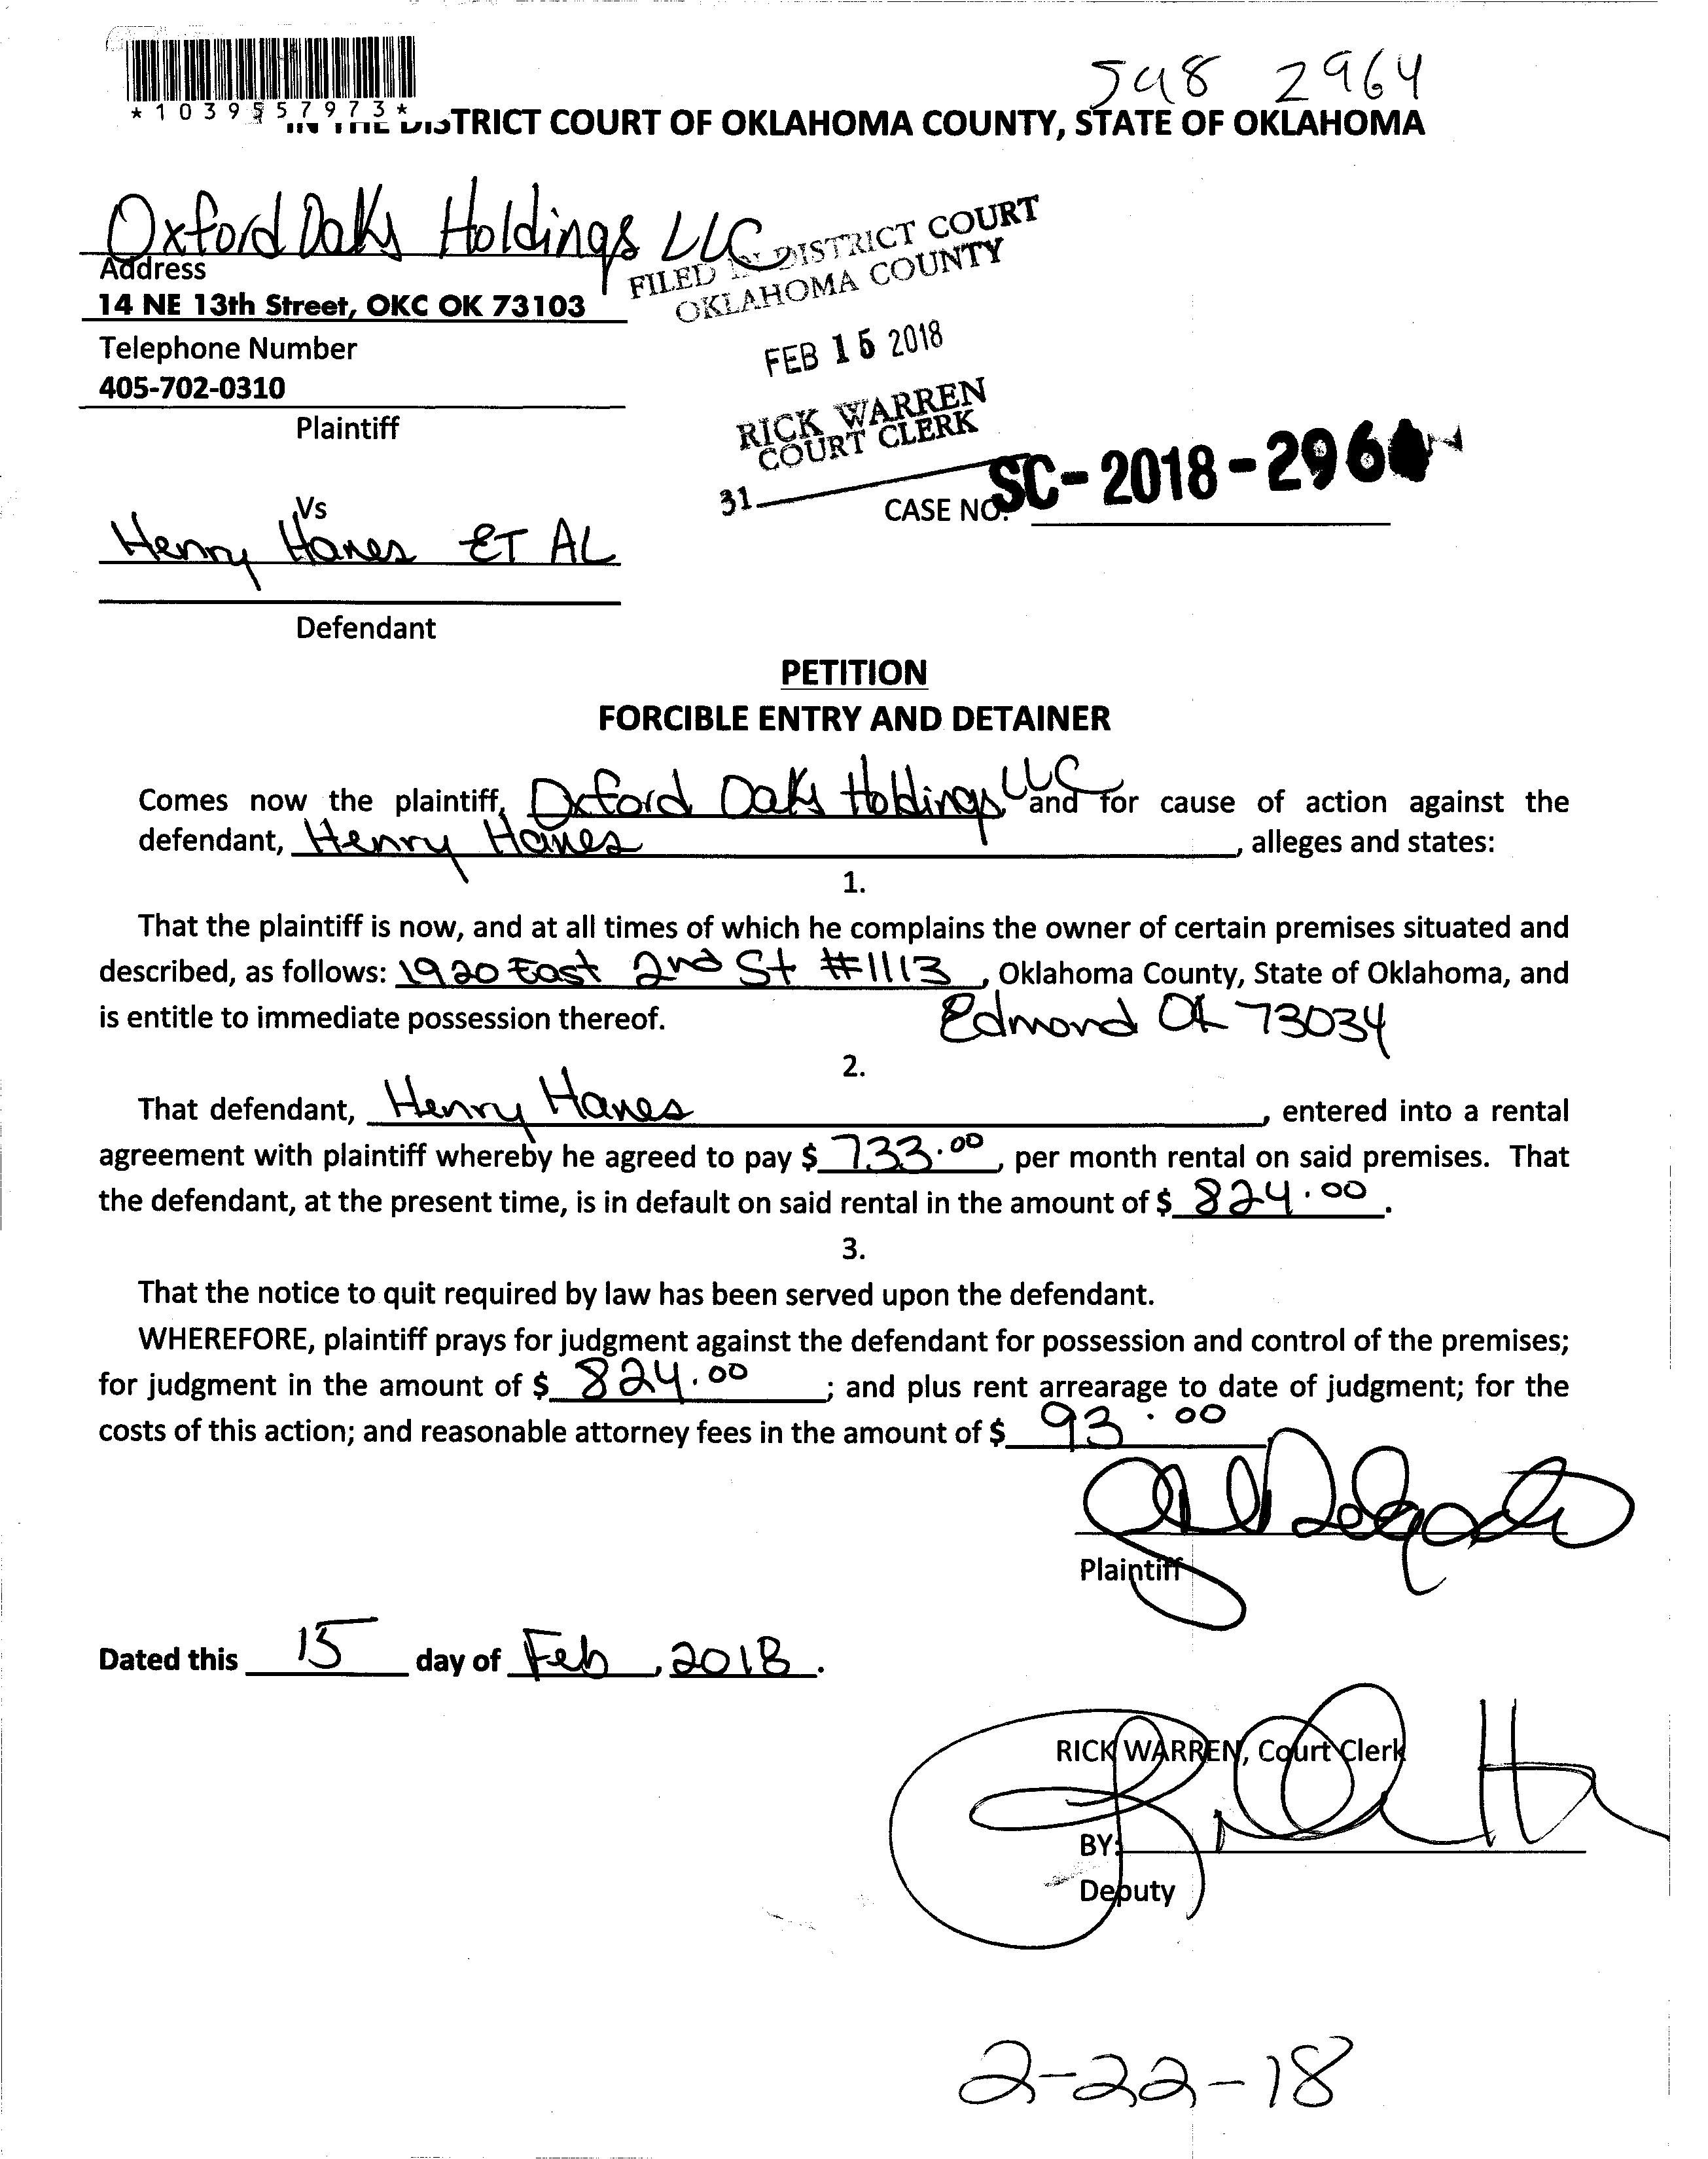 548 2964
*1039557973*
IN THE DISTRICT COURT OF OKLAHOMA COUNTY, STATE OF OKLAHOMA
Oxford Oaks Holdings LLC
Address
14 NE 13th Street, OKC OK 73103
Telephone Number
405-702-0310
Plaintiff
FILED IN DISTRICT COURT
OKLAHOMA COUNTY
FEB 15 2018
RICK WARREN
COURT CLERK
31
CASE NO. SC-2018-296
Vs
Henry Hanes ET AL
Defendant
PETITION
FORCIBLE ENTRY AND DETAINER
Comes now the plaintiff, Oxford Oaks Holdings LLC and for cause of action against the
defendant, Henry Hanes, alleges and states:
1.
That the plaintiff is now, and at all times of which he complains the owner of certain premises situated and
described, as follows: 1920 East 2nd St #1113, Oklahoma County, State of Oklahoma, and
is entitle to immediate possession thereof. Edmond OK 73034
2.
That defendant, Henry Hanes, entered into a rental
agreement with plaintiff whereby he agreed to pay $ 733.00, per month rental on said premises. That
the defendant, at the present time, is in default on said rental in the amount of $ 824.00.
3.
That the notice to quit required by law has been served upon the defendant.
WHEREFORE, plaintiff prays for judgment against the defendant for possession and control of the premises;
for judgment in the amount of $ 824.00; and plus rent arrearage to date of judgment; for the
costs of this action; and reasonable attorney fees in the amount of $ 93.00
Plaintiff
Dated this 15 day of Feb, 2018.
RICK WARREN, Court Clerk
BY:
Deputy
2-22-18